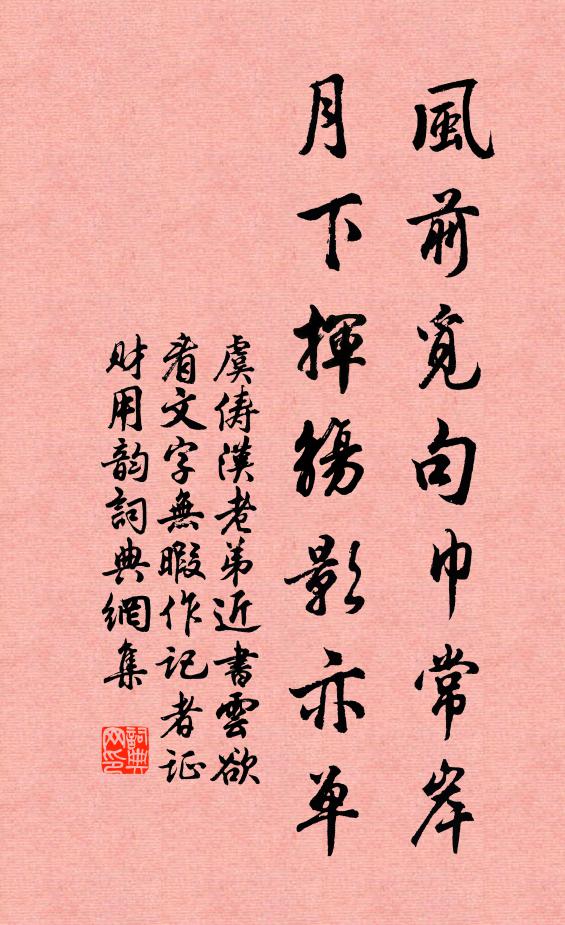 風前覓句巾常岸
月下揮觴影亦單
虞儔漢老弟近書雲欲
看文字無暇作記者証
財用韵詞典網集
詞典网印